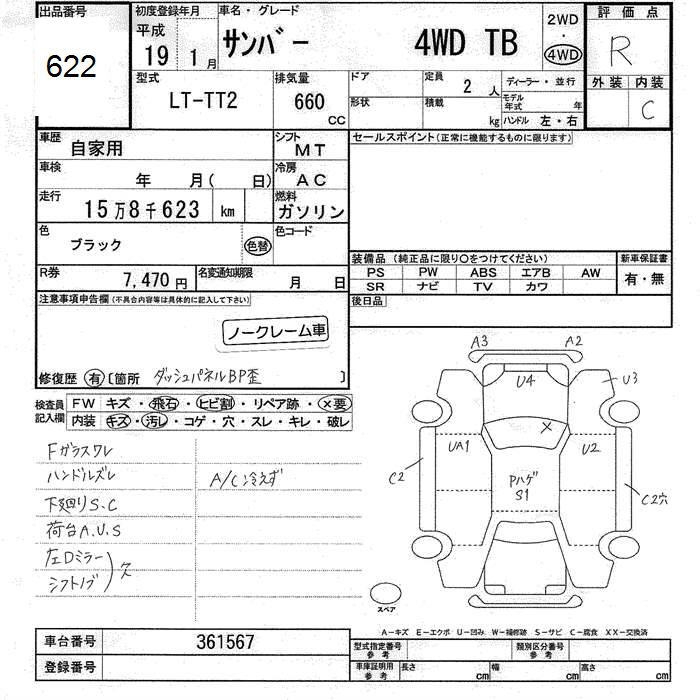 出品番号
622
初度登録年月
平成
19 1月
車名・グレード
サンバー 4WD TB
2WD
・
4WD
評価点
R
型式
LT-TT2
排気量
660
CC
ドア
形状
定員
2 人
積載
kg
ディーラー・並行
モデル
年式 年
ハンドル 左・右
外装 内装
C
車歴
自家用
シフト
MT
セールスポイント(正常に機能するものに限ります)
車検
年 月( 日)
冷房
AC
走行
15万8千623 km
燃料
ガソリン
色
ブラック
色替
色コード
装備品(純正品に限り○をつけてください)
新車保証書
PS PW ABS エアB AW
SR ナビ TV カワ
有・無
R券
7,470円
名変通知期限
月 日
後日品
注意事項申告欄(不具合内容等は具体的に記入して下さい)
ノークレーム車
修復歴 有 〔箇所 ダッシュパネルBP歪 〕
検査員
記入欄
FW キズ・飛石・ヒビ割・リペア跡・×要
内装 キズ・汚レ・コゲ・穴・スレ・キレ・破レ
Fガラスワレ
ハンドルズレ
A/C冷えず
下廻りS.C
荷台A.U.S
左Dミラー
シフトノブ
欠
A3
A2
U4
U3
X
UA1
U2
C2
Pハゲ
S1
C2穴
スペア
A-キズ E-エクボ U-凹み W-補修跡 S-サビ C-腐食 XX-交換済
車台番号
361567
登録番号
型式指定番号
参考
類別区分番号
参考
車庫証明用
参考
長さ
cm
幅
cm
高さ
cm